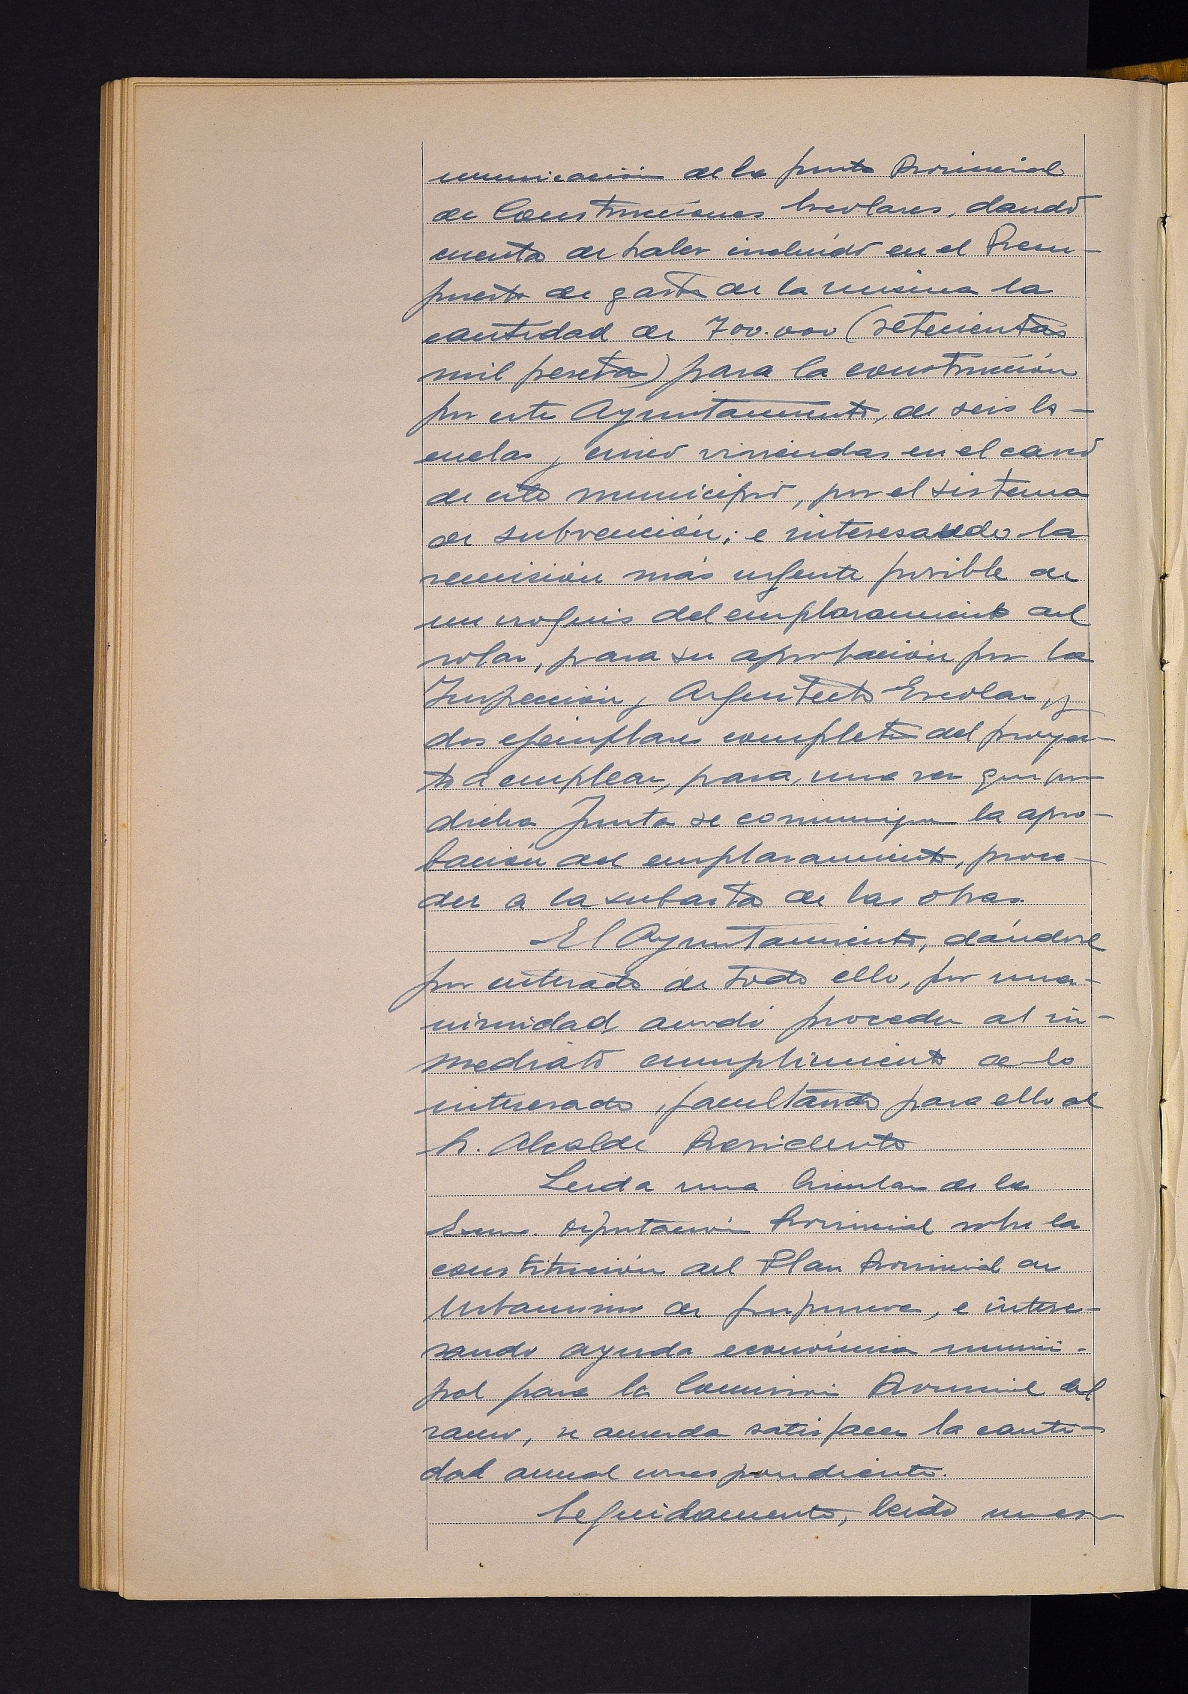 municación de la Junta Provincial
de Construcciones Escolares, dando
cuenta de haber incluido en el Presu-
puesto de gastos de la misma la
cantidad de 700.000 (setecientas
mil pesetas) para la construcción
por este Ayuntamiento, de seis Es-
cuelas y cinco viviendas en el casco
de este municipio, por el sistema
de subvención; e interesando la
remisión más urgente posible de
un croquis del emplazamiento del
solar, para su aprobación por la
Inspección y Arquitecto Escolar, y
dos ejemplares completos del proyec-
to a emplear, para, una vez que por
dicha Junta se comunique la apro-
bación del emplazamiento, proce-
der a la subasta de las obras.
El Ayuntamiento, dándose
por enterado de todo ello, por una-
nimidad acordó proceder al in-
mediato cumplimiento de lo
interesado, facultando para ello al
Sr. Alcalde Presidente
Leida una Circular de la
Excma. Diputación Provincial sobre la
constitución del Plan Provincial de
Urbanismo de Guipuzcoa, e intere-
sando ayuda económica munici-
pal para la Comisión Provincial del
ramo, se acuerda satisfacer la canti-
dad anual correspondiente.
Seguidamente, leido un es-